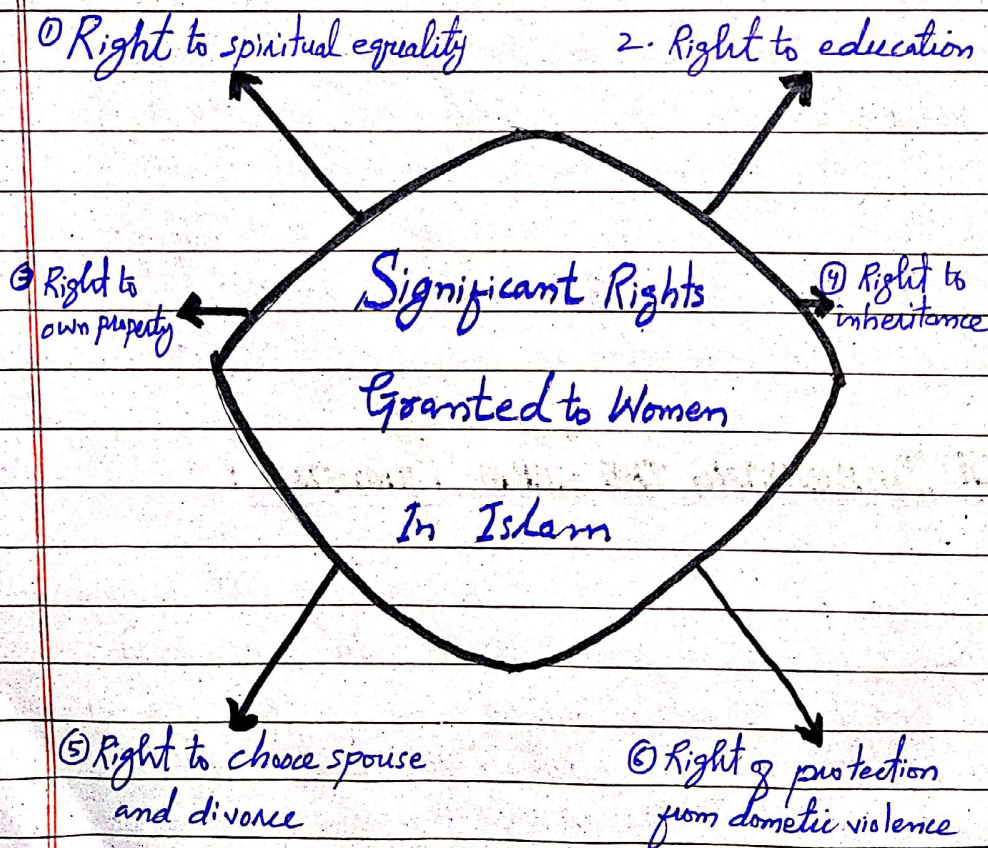 ① Right to spiritual equality
2. Right to education
③ Right to
own property
Significant Rights
Granted to Women
In Islam
④ Right to
inheritance
⑤ Right to choose spouse
and divorce
⑥ Right of protection
from dometic violence